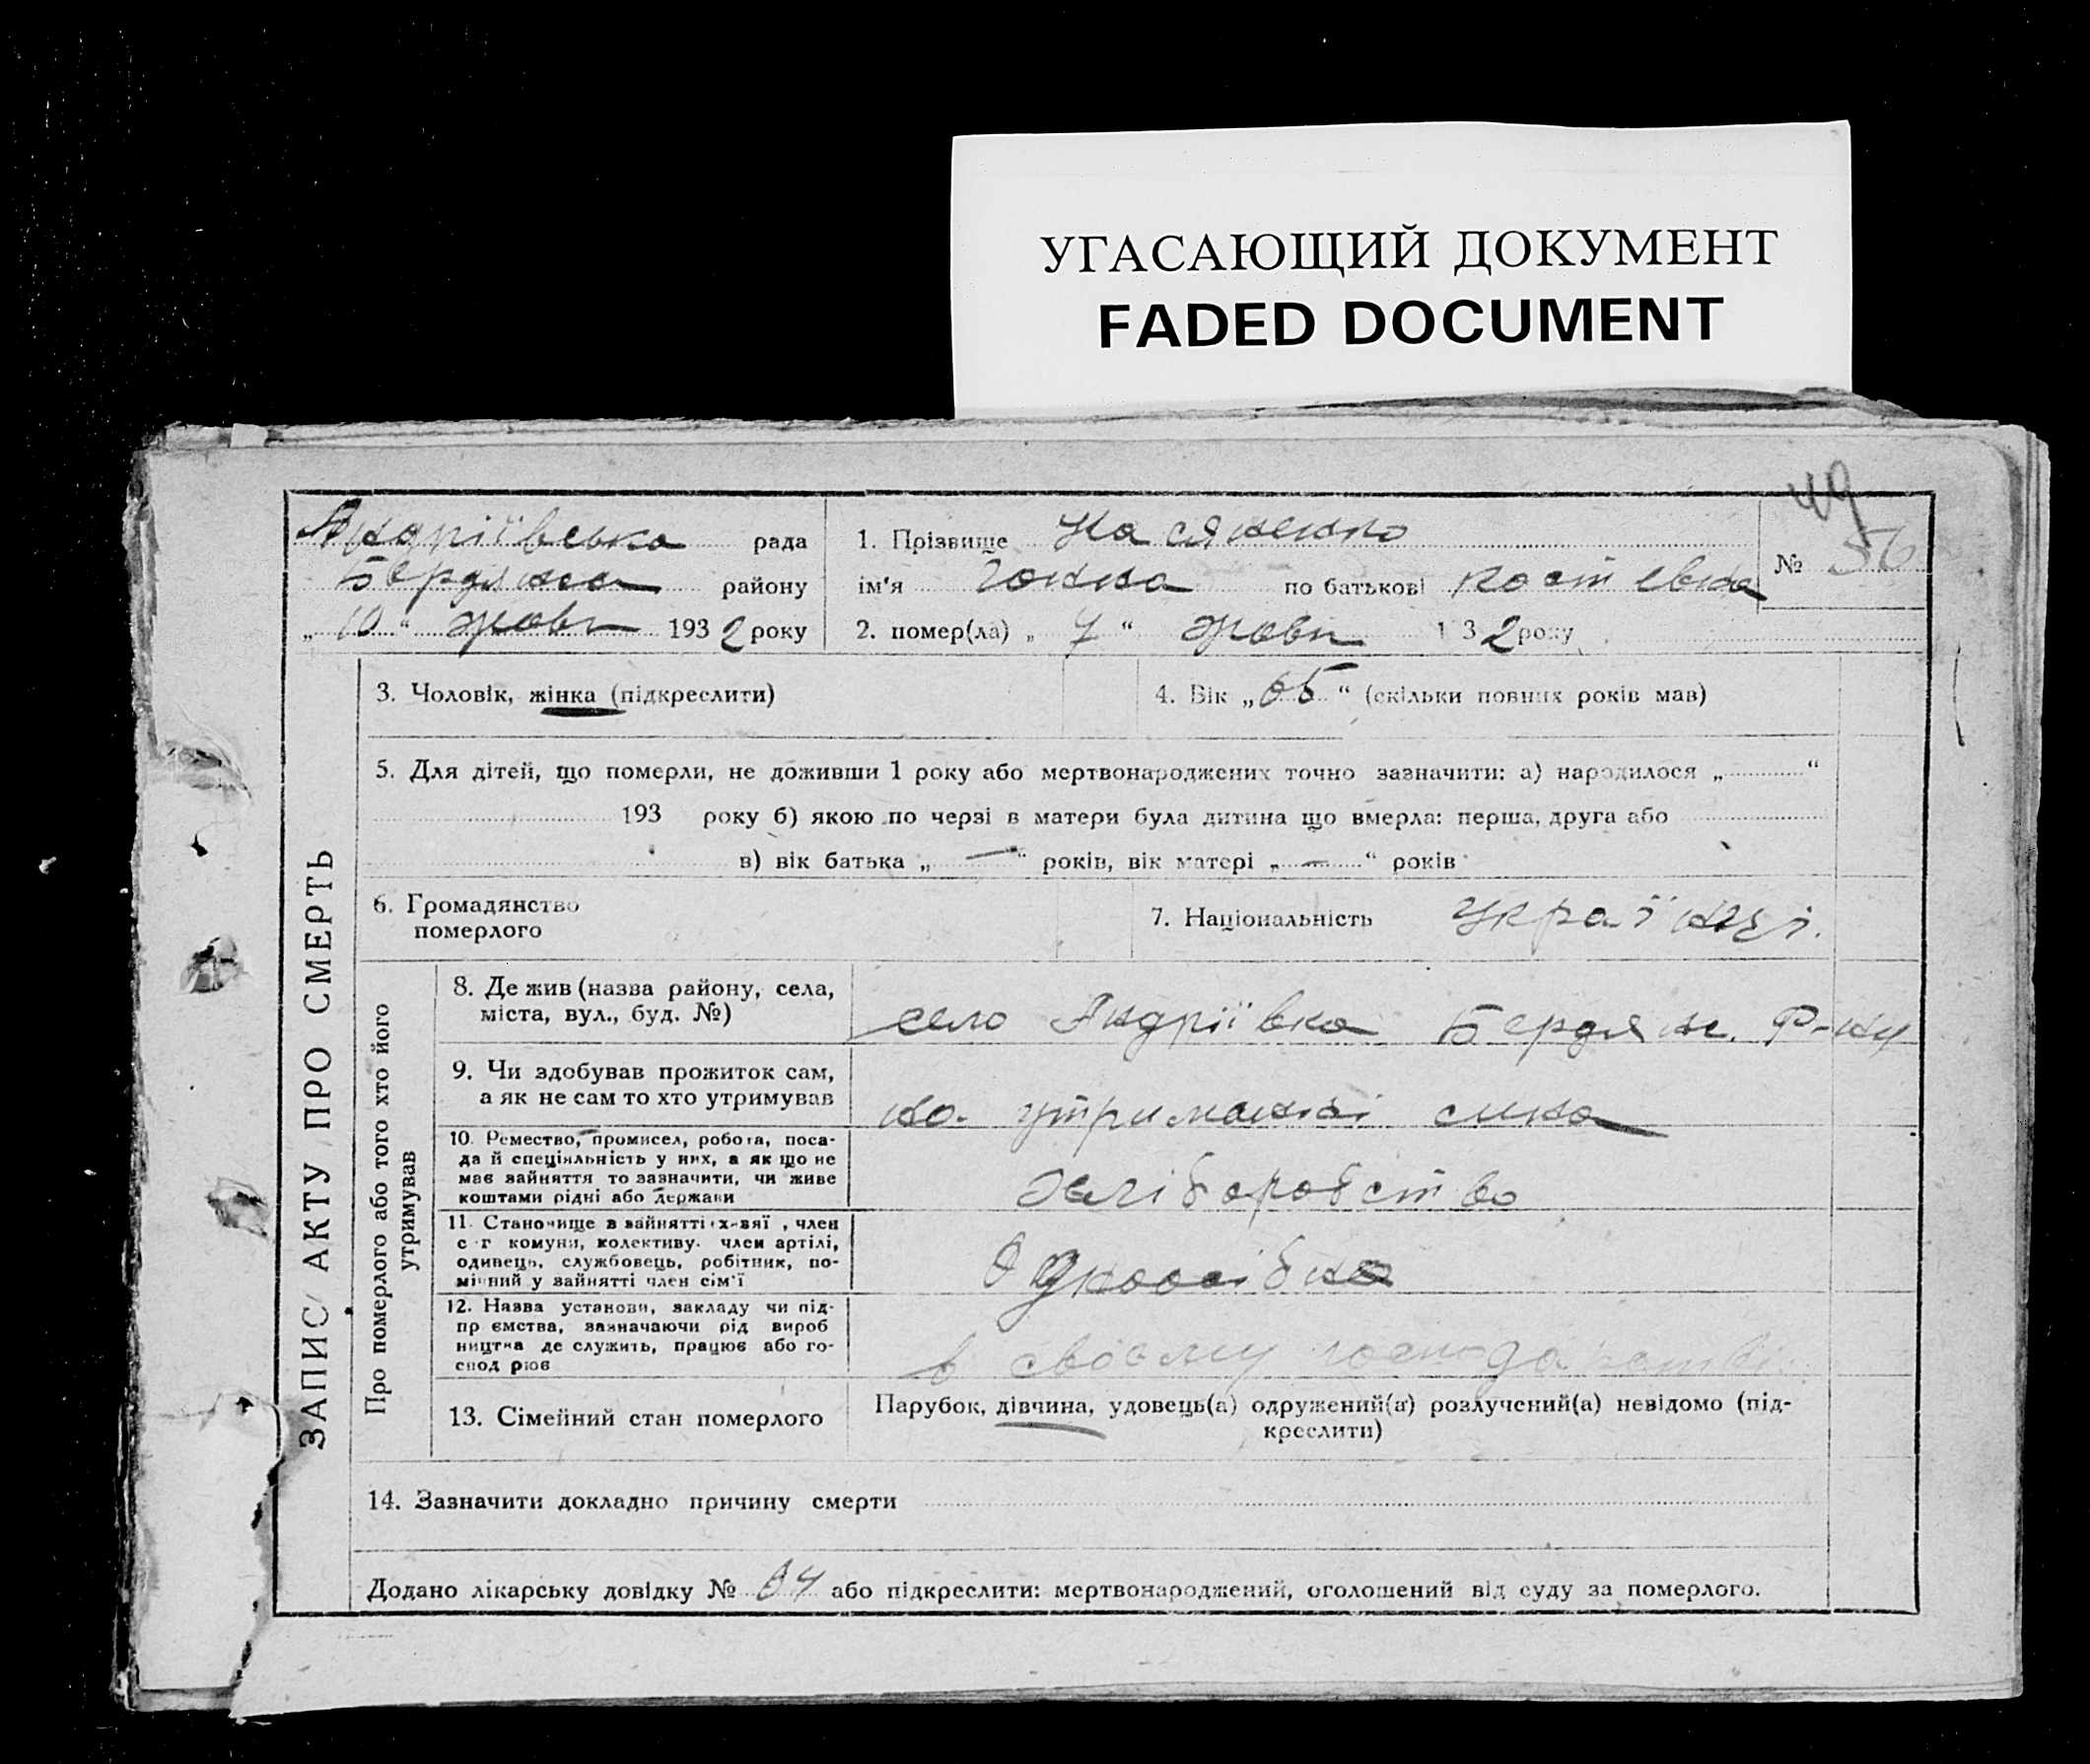 УГАСАЮЩИЙ ДОКУМЕНТ
FADED DOCUMENT
49
Андріївська рада
Бердянск району
„10“ жовтн 1932 року
1. Прізвище Касяненко
ім'я Ганна по батькові Кост евна
№ 56
2. помер(ла) „7“ жовтн 1 32 року
ЗАПИС АКТУ ПРО СМЕРТЬ
3. Чоловік, жінка (підкреслити)
4. Вік „65“ (скільки повних років мав)
5. Для дітей, що померли, не доживши 1 року або мертвонароджених точно зазначити: а) народилося „ “
193 року б) якою по черзі в матери була дитина що вмерла: перша, друга або
в) вік батька „—“ років, вік матері „—“ років
6. Громадянство
померлого
7. Національність Українці.
Про померлого або того хто його
утримував
8. Де жив (назва району, села,
міста, вул., буд. №)
село Андріївка Бердян. Р-ну
9. Чи здобував прожиток сам,
а як не сам то хто утримував
на утриманні сина
10. Ремество, промисел, робота, поса-
да й спеціяльність у них, а як що не
має зайняття то зазначити, чи живе
коштами рідні або держави
Хліборобство
11. Становище в зайнятті х-зяї , член
с-г комуни, колективу. член артілі,
одинець, службовець, робітник, по-
мічний у зайнятті член сім'ї
Одноосібна
12. Назва установи, закладу чи під-
пр ємства, зазначаючи рід вироб
ництва де служить, працює або го-
спод рює
в своєму господарстві
13. Сімейний стан померлого
Парубок, дівчина, удовець(а) одружений(а) розлучений(а) невідомо (під-
креслити)
14. Зазначити докладно причину смерти
Додано лікарську довідку № 64 або підкреслити: мертвонароджений, оголошений від суду за померлого.